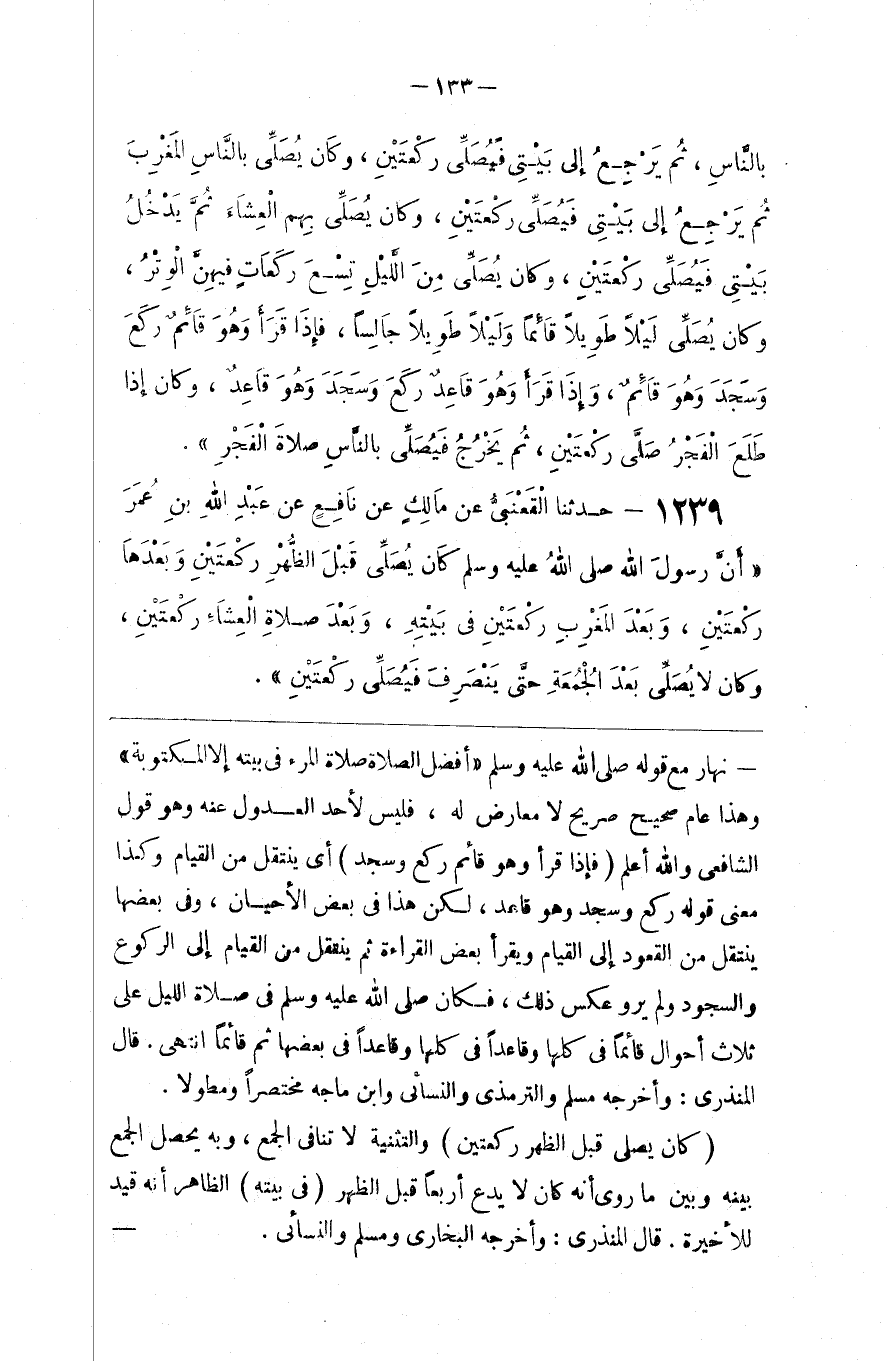 — ١٣٣ —
بالنَّاسِ ، ثُم يَرْجِعُ إلى بَيْتِى فَيُصَلِّى رَكْعَتَيْنِ ، وكَان يُصَلِّى بالنَّاسِ المَغْرِبَ
ثُم يَرْجِعُ إلى بَيْتِى فَيُصَلِّى رَكْعَتَيْنِ ، وكان يُصَلِّى بِهِم الْعِشَاءَ ثُمَّ يَدْخُلُ
بَيْتِى فَيُصَلِّى رَكْعَتَيْنِ ، وكان يُصَلِّى مِنَ اللَّيْلِ تِسْعَ رَكَعَاتٍ فيهِنَّ الْوِتْرُ ،
وكان يُصَلِّى لَيْلاً طَوِيلاً قَائِماً وَلَيْلاً طَوِيلاً جَالِساً ، فإذَا قَرَأَ وَهُوَ قَائِمٌ رَكَعَ
وَسَجَدَ وَهُوَ قَائِمٌ ، وَإِذَا قَرَأَ وَهُوَ قَاعِدٌ رَكَعَ وَسَجَدَ وَهُوَ قَاعِدٌ ، وكان إذا
طَلَعَ الْفَجْرُ صَلَّى رَكْعَتَيْنِ ، ثُم يَخْرُجُ فَيُصَلِّى بالنَّاسِ صلاةَ الْفَجْرِ » .
١٢٣٩ — حدثنا الْقَعْنَبِيُّ عن مَالِكٍ عن نَافِعٍ عن عَبْدِ اللهِ بنِ عُمَرَ
« أَنَّ رسولَ الله صلى اللهُ عليه وسلم كَان يُصَلِّى قَبْلَ الظُّهْرِ رَكْعَتَيْنِ وَبَعْدَهَا
رَكْعَتَيْنِ ، وَبَعْدَ المَغْرِبِ رَكْعَتَيْنِ فى بَيْتِهِ ، وَبَعْدَ صلاةِ الْعِشَاءِ رَكْعَتَيْنِ ،
وكان لا يُصَلِّى بَعْدَ الْجُمُعَةِ حتَّى يَنْصَرِفَ فَيُصَلِّى رَكْعَتَيْنِ » .
— نهار مع قوله صلى الله عليه وسلم «أفضل الصلاة صلاة المرء فى بيته إلا المكتوبة»
وهذا عام صحيح صريح لا معارض له ، فليس لأحد العدول عنه وهو قول
الشافعى والله أعلم ( فإذا قرأ وهو قائم ركع وسجد ) أى ينتقل من القيام وكذا
معنى قوله ركع وسجد وهو قاعد ، لكن هذا فى بعض الأحيان ، وفى بعضها
ينتقل من القعود إلى القيام ويقرأ بعض القراءة ثم ينتقل من القيام إلى الركوع
والسجود ولم يرو عكس ذلك ، فكان صلى الله عليه وسلم فى صلاة الليل على
ثلاث أحوال قائماً فى كلها وقاعداً فى كلها وقاعداً فى بعضها ثم قائماً انتهى . قال
المنذرى : وأخرجه مسلم والترمذى والنسائى وابن ماجه مختصراً ومطولا .
( كان يصلى قبل الظهر ركعتين ) والتثنية لا تنافى الجمع ، وبه يحصل الجمع
بينه وبين ما روى أنه كان لا يدع أربعاً قبل الظهر ( فى بيته ) الظاهر أنه قيد
للأخيرة . قال المنذرى : وأخرجه البخارى ومسلم والنسائى . —